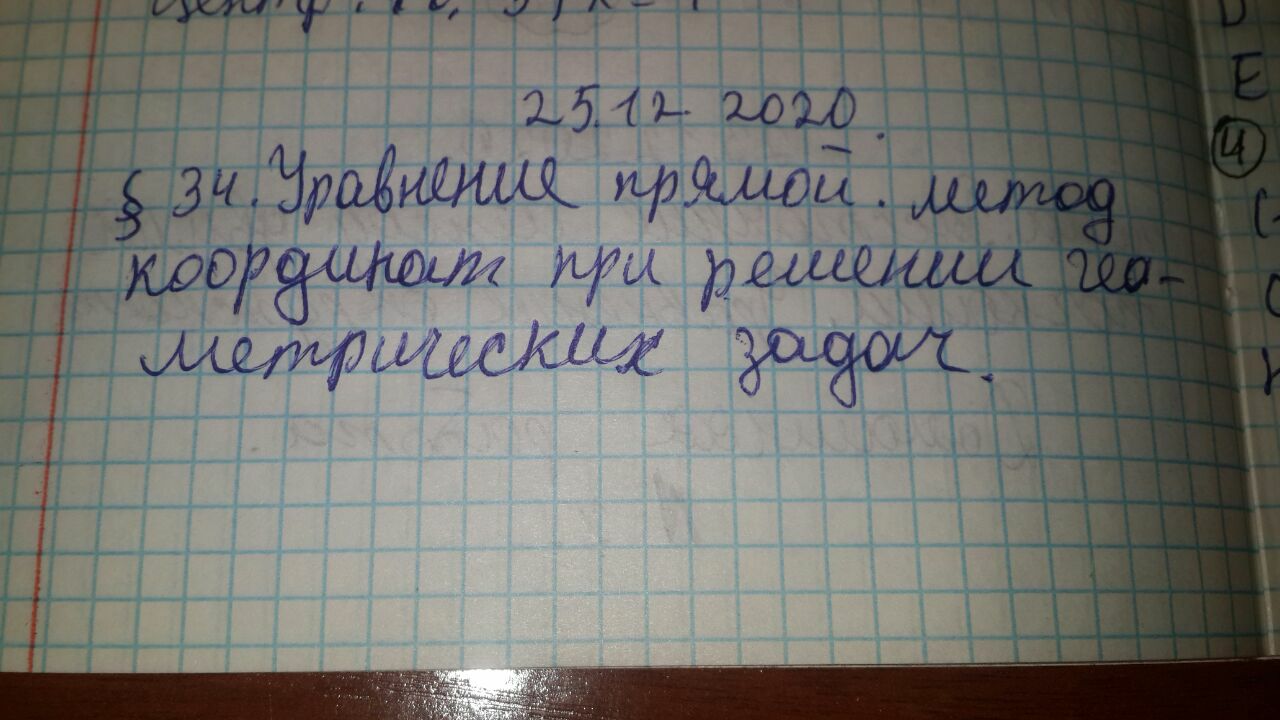 25.12.2020.
§ 34. Уравнение прямой. метод
координат при решении гео-
метрических задач.
E
4